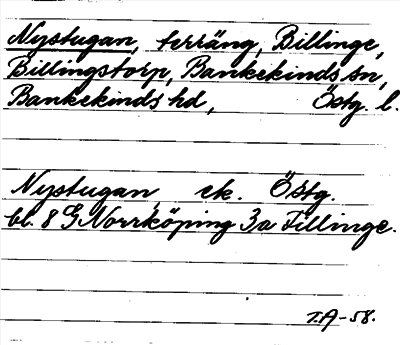 Nystugan, terräng, Billinge,
Billingstorp, Bankekinds sn,
Bankekinds hd, Östg. l.
Nystugan ek. Östg.
bl. 8 G Norrköping 3a Fillinge.
T.A-58.